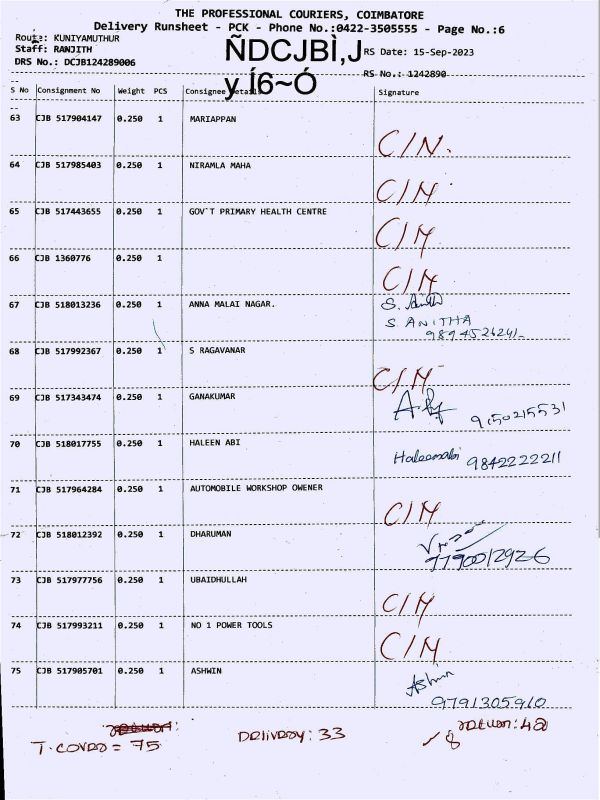 THE PROFESSIONAL COURIERS, COIMBATORE
Delivery Runsheet - PCK - Phone No.:0422-3505555 - Page No.:6
Route: KUNIYAMUTHUR
Staff: RANJITH
ÑDCJBÌ,J
RS Date: 15-Sep-2023
DRS No.: DCJB124289006
y Í6~Ó
RS No.: 1242890
S No Consignment No Weight PCS Consignee Details Signature
63 CJB 517904147 0.250 1 MARIAPPAN
C/N.
64 CJB 517985403 0.250 1 NIRAMLA MAHA
C/M
65 CJB 517443655 0.250 1 GOV`T PRIMARY HEALTH CENTRE
C/M
66 CJB 1360776 0.250 1
C/M
67 CJB 518013236 0.250 1 ANNA MALAI NAGAR.
S ANITHA
68 CJB 517992367 0.250 1 S RAGAVANAR
C/M
69 CJB 517343474 0.250 1 GANAKUMAR
9150215531
70 CJB 518017755 0.250 1 HALEEN ABI
9842222211
71 CJB 517964284 0.250 1 AUTOMOBILE WORKSHOP OWENER
C/M
72 CJB 518012392 0.250 1 DHARUMAN
73 CJB 517977756 0.250 1 UBAIDHULLAH
C/M
74 CJB 517993211 0.250 1 NO 1 POWER TOOLS
C/M
75 CJB 517905701 0.250 1 ASHWIN
Ashwin
9791305910
T. COVER = 75
Delivery: 33